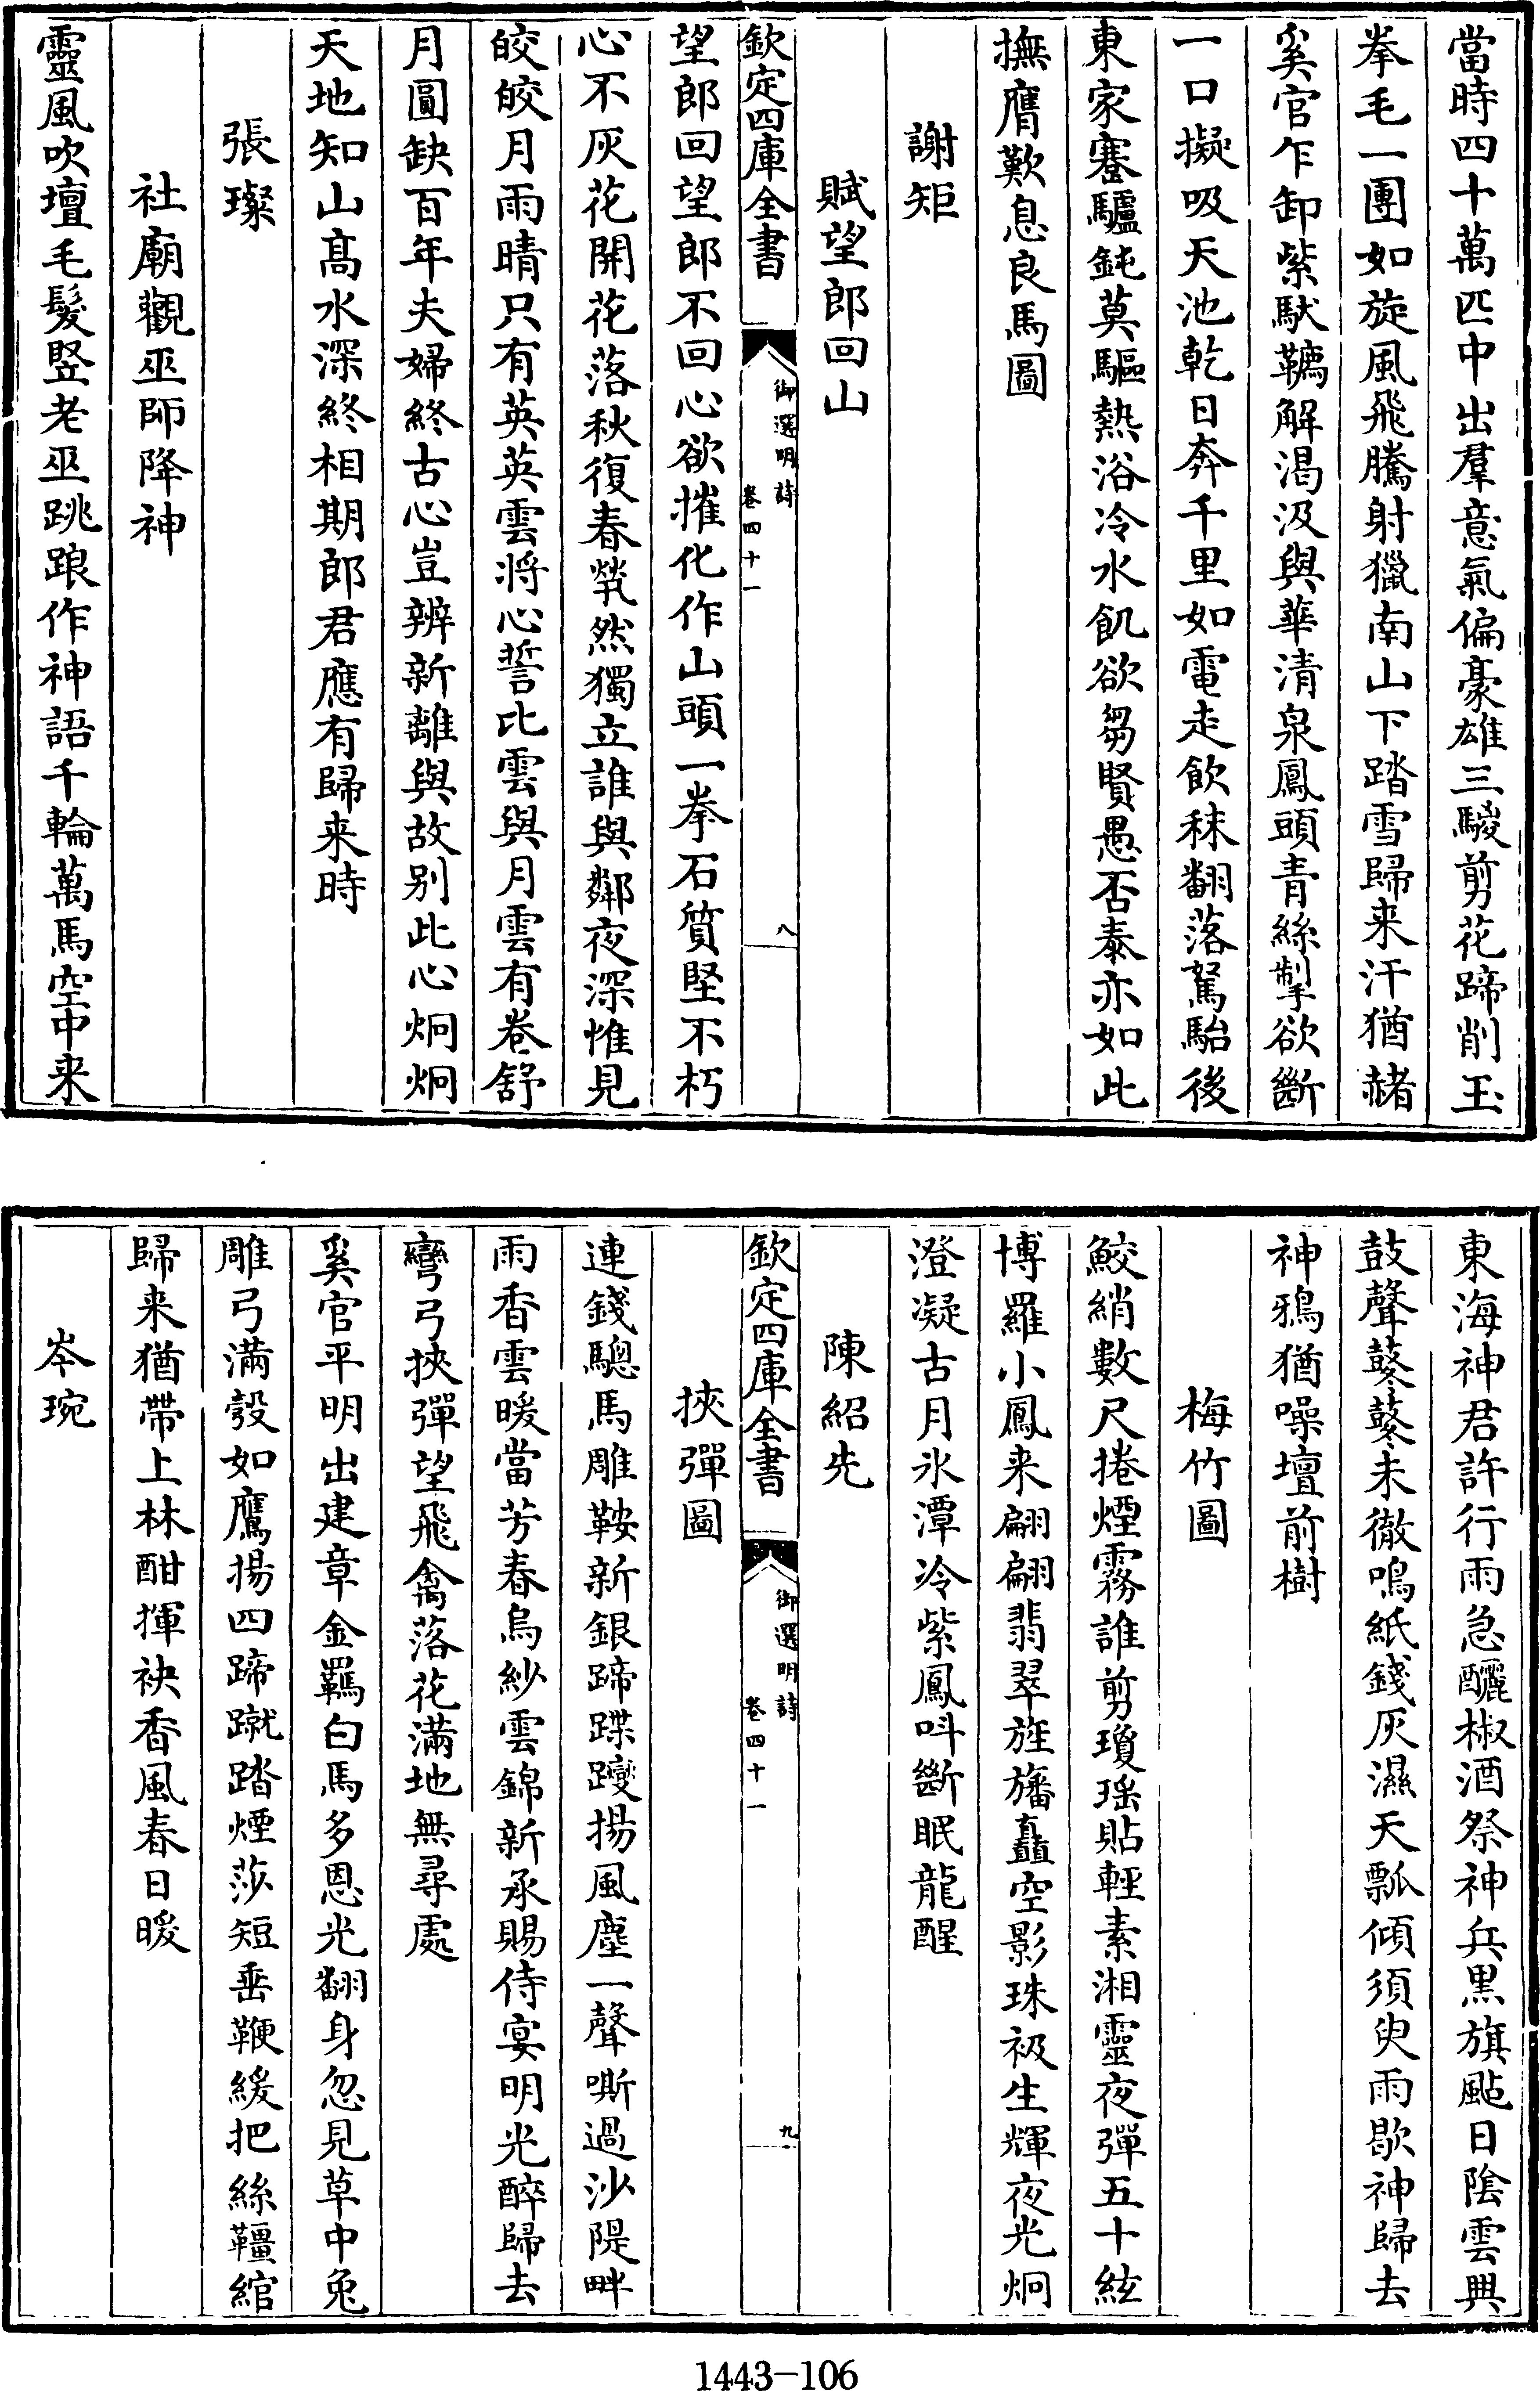 當時四十萬匹中出羣意氣偏豪雄三騣剪花蹄削玉
拳毛一團如旋風飛騰射獵南山下踏雪歸来汗猶赭
奚官乍卸紫䭾韉解渴汲與華清泉鳳頭青絲掣欲斷
一口擬吸天池乾日奔千里如電走飲秣翻落駑駘後
東家蹇驢鈍莫驅熱浴冷水飢欲芻賢愚否泰亦如此
撫膺歎息良馬圖
謝矩
賦望郎回山
欽定四庫全書
御選明詩
卷四十一
八
望郎回望郎不回心欲摧化作山頭一拳石質堅不朽
心不灰花開花落秋復春煢然獨立誰與鄰夜深惟見
皎皎月雨晴只有英英雲將心誓比雲與月雲有卷舒
月圓缺百年夫婦終古心豈辨新離與故别此心炯炯
天地知山髙水深終相期郎君應有歸来時
張璨
社廟觀巫師降神
靈風吹壇毛髮竪老巫跳踉作神語千輪萬馬空中来
東海神君許行雨急釃椒酒祭神兵黒旗颭日陰雲興
鼓聲鼕鼕未徹鳴紙錢灰濕天瓢傾須臾雨歇神歸去
神鴉猶噪壇前樹
梅竹圖
鮫綃數尺捲煙霧誰剪瓊瑶貼輕素湘靈夜彈五十絃
博羅小鳳来翩翩翡翠旌旛矗空影珠衱生輝夜光炯
澄凝古月氷潭冷紫鳳呌斷眠龍醒
陳紹先
欽定四庫全書
御選明詩
卷四十一
九
挾彈圖
連錢驄馬雕鞍新銀蹄蹀躞揚風塵一聲嘶過沙隄畔
雨香雲暖當芳春烏紗雲錦新承賜侍宴明光醉歸去
彎弓挾彈望飛禽落花滿地無尋處
奚官平明出建章金羈白馬多恩光翻身忽見草中兔
雕弓滿彀如鷹揚四蹄蹴踏煙莎短垂鞭緩把絲韁綰
歸来猶帶上林酣揮袂香風春日暖
岑琬
1443-106